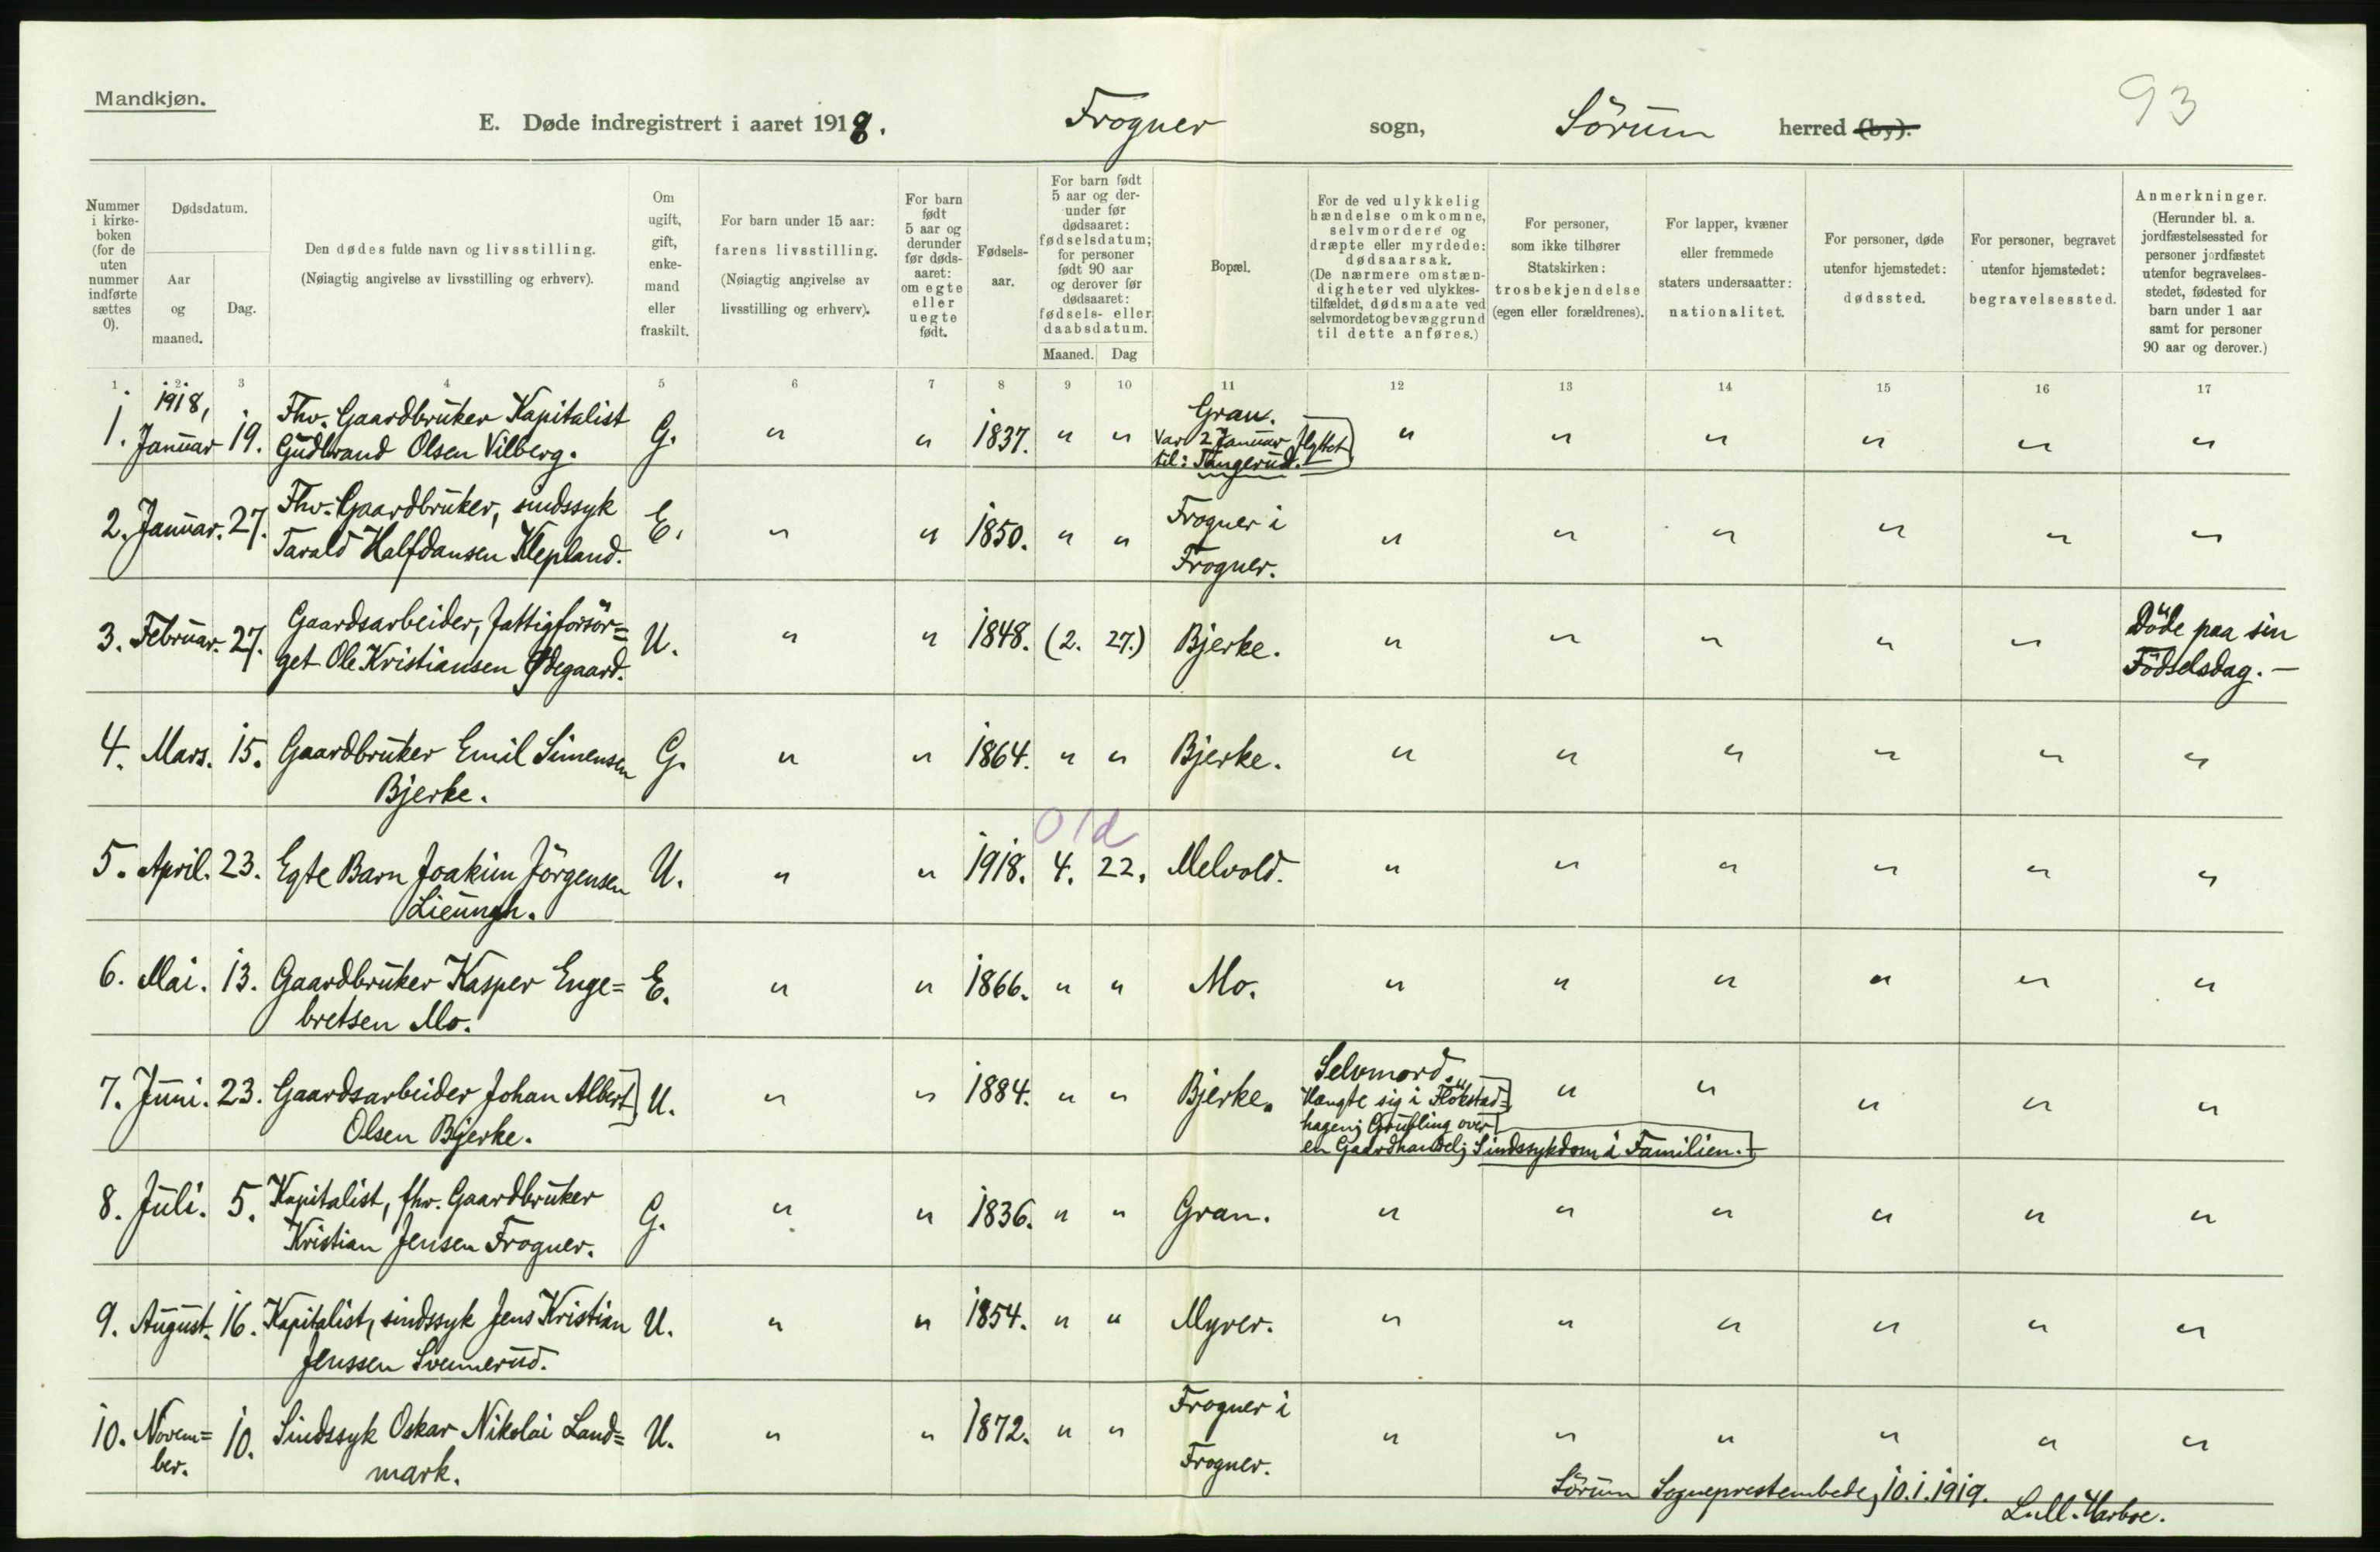 93
Mandkjøn.
E. Døde indregistrert i aaret 1918. Frogner sogn, Sörum herred (by).
Nummer i kirke-boken (for de uten nummer indførte sættes 0).
Dødsdatum.
Aar og maaned.
Dag.
Den dødes fulde navn og livsstilling.
(Nøiagtig angivelse av livsstilling og erhverv).
Om ugift, gift, enke-mand eller fraskilt.
For barn under 15 aar: farens livsstilling.
(Nøiagtig angivelse av livsstilling og erhverv).
For barn født 5 aar og derunder før døds-aaret: om egte eller uegte født.
Fødsels-aar.
For barn født 5 aar og der-under før dødsaaret: fødselsdatum; for personer født 90 aar og derover før dødsaaret: fødsels- eller daabsdatum.
Maaned. Dag
Bopæl.
For de ved ulykkelig hændelse omkomne, selvmordere og dræpte eller myrdede: dødsaarsak.
(De nærmere omstæn-digheter ved ulykkes-tilfældet, dødsmaate ved selvmordet og bevæggrund til dette anføres.)
For personer, som ikke tilhører Statskirken: trosbekjendelse (egen eller forældrenes).
For lapper, kvæner eller fremmede staters undersaatter: nationalitet.
For personer, døde utenfor hjemstedet: dødssted.
For personer, begravet utenfor hjemstedet: begravelsessted.
Anmerkninger.
(Herunder bl. a. jordfæstelsessted for personer jordfæstet utenfor begravelses-stedet, fødested for barn under 1 aar samt for personer 90 aar og derover.)
1 2 3 4 5 6 7 8 9 10 11 12 13 14 15 16 17
1. 1918, Januar 19. Fhv. Gaardbruker Kapitalist Gudbrand Olsen Vilberg. G. " " 1837. " " Gran. Var 2 Januar flyttet til: Tangerud. " " " " " "
2. Januar. 27. Fhv. Gaardbruker, sindssyk Tarald Halfdansen Klepland. E. " " 1850. " " Frogner i Frogner. " " " " " "
3. Februar. 27. Gaardsarbeider, fattigforsör=get Ole Kristiansen Ødegaard. U. " " 1848. (2. 27.) Bjerke. " " " " " Döde paa sin Födselsdag. —
4. Mars. 15. Gaardbruker Emil Simensen Bjerke. G. " " 1864. " " Bjerke. " " " " " "
old
5. April. 23. Egte Barn Joakim Jörgensen Lieungh. U. " " 1918. 4. 22. Melvold. " " " " " "
6. Mai. 13. Gaardbruker Kasper Enge=bretsen Mo. E. " " 1866. " " Mo. " " " " " "
7. Juni. 23. Gaardsarbeider Johan Albert Olsen Bjerke. U. " " 1884. " " Bjerke. Selvmord. Hængte sig i Flokstad=hagen; Grubling over en Gaardhandel; Sindssykdom i Familien. " " " " "
8. Juli. 5. Kapitalist, fhv. Gaardbruker Kristian Jensen Frogner. G. " " 1836. " " Gran. " " " " " "
9. August. 16. Kapitalist, sindssyk Jens Kristian Jenssen Svennerud. U. " " 1854. " " Myrer. " " " " " "
10. Novem=ber. 10. Sindssyk Oskar Nikolai Land=mark. U. " " 1872. " " Frogner i Frogner. " " " " " "
Sörum Sogneprestembede, 10.1.1919.
Harboe.